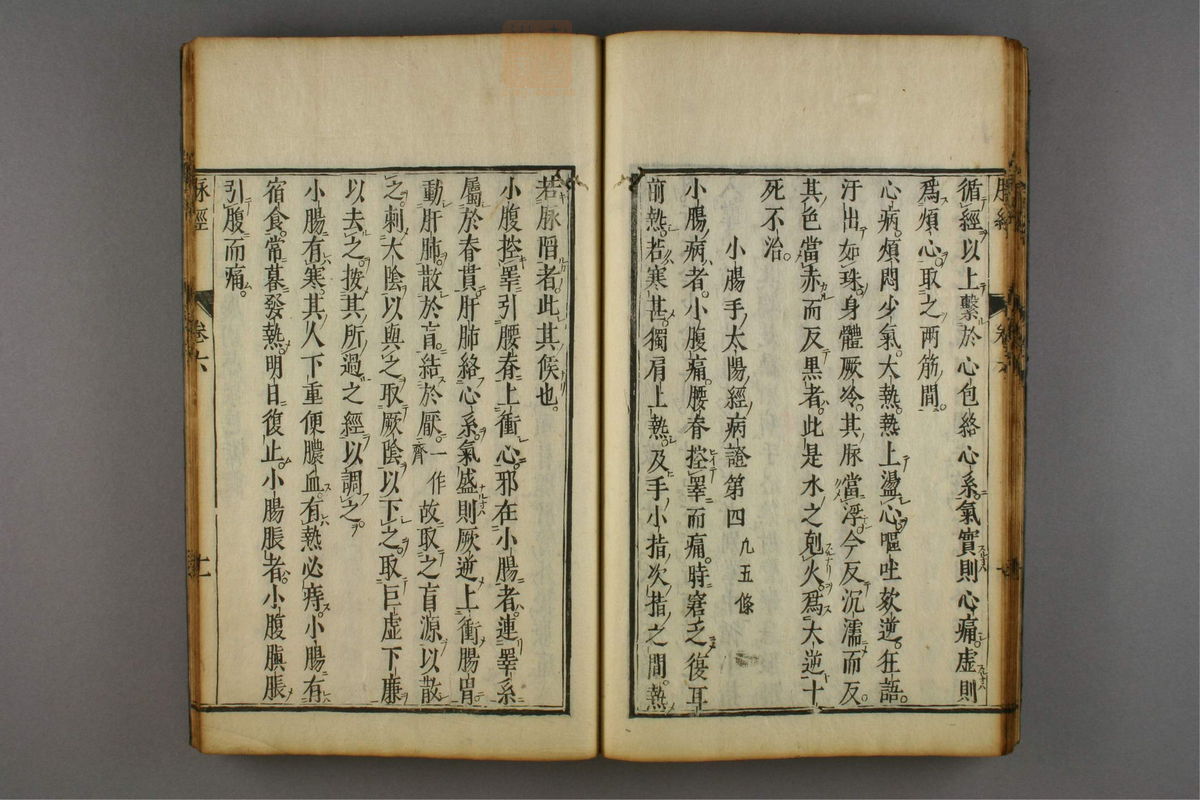 脉經
卷六
循經以上繫於心包絡心系氣實則心痛虛則
爲煩心取之兩筋間
心病煩悶少氣大熱熱上盪心嘔吐欬逆狂語
汗出如珠身體厥冷其脉當浮今反沉濡而反
其色當赤而反黒者此是水之尅火爲大逆十
死不治
小腸手太陽經病證第四 凢五條
小腸病者小腹痛腰脊控睪而痛時窘之復耳
前熱若寒甚獨肩上熱及手小指次指之間熱
若脉陷者此其候也
小腹控睪引腰脊上衝心邪在小腸者連睪系
屬於脊貫肝肺絡心系氣盛則厥逆上衝腸胃
動肝肺散於肓結於厭一作齊故取之肓源以散
之刺太陰以與之取厥陰以下之取巨虛下廉
以去之按其所過之經以調之
小腸有寒其人下重便膿血有熱必痔小腸有
宿食常暮發熱明日復止小腸脹者小腹䐜脹
引腹而痛
脉經
卷六
十一